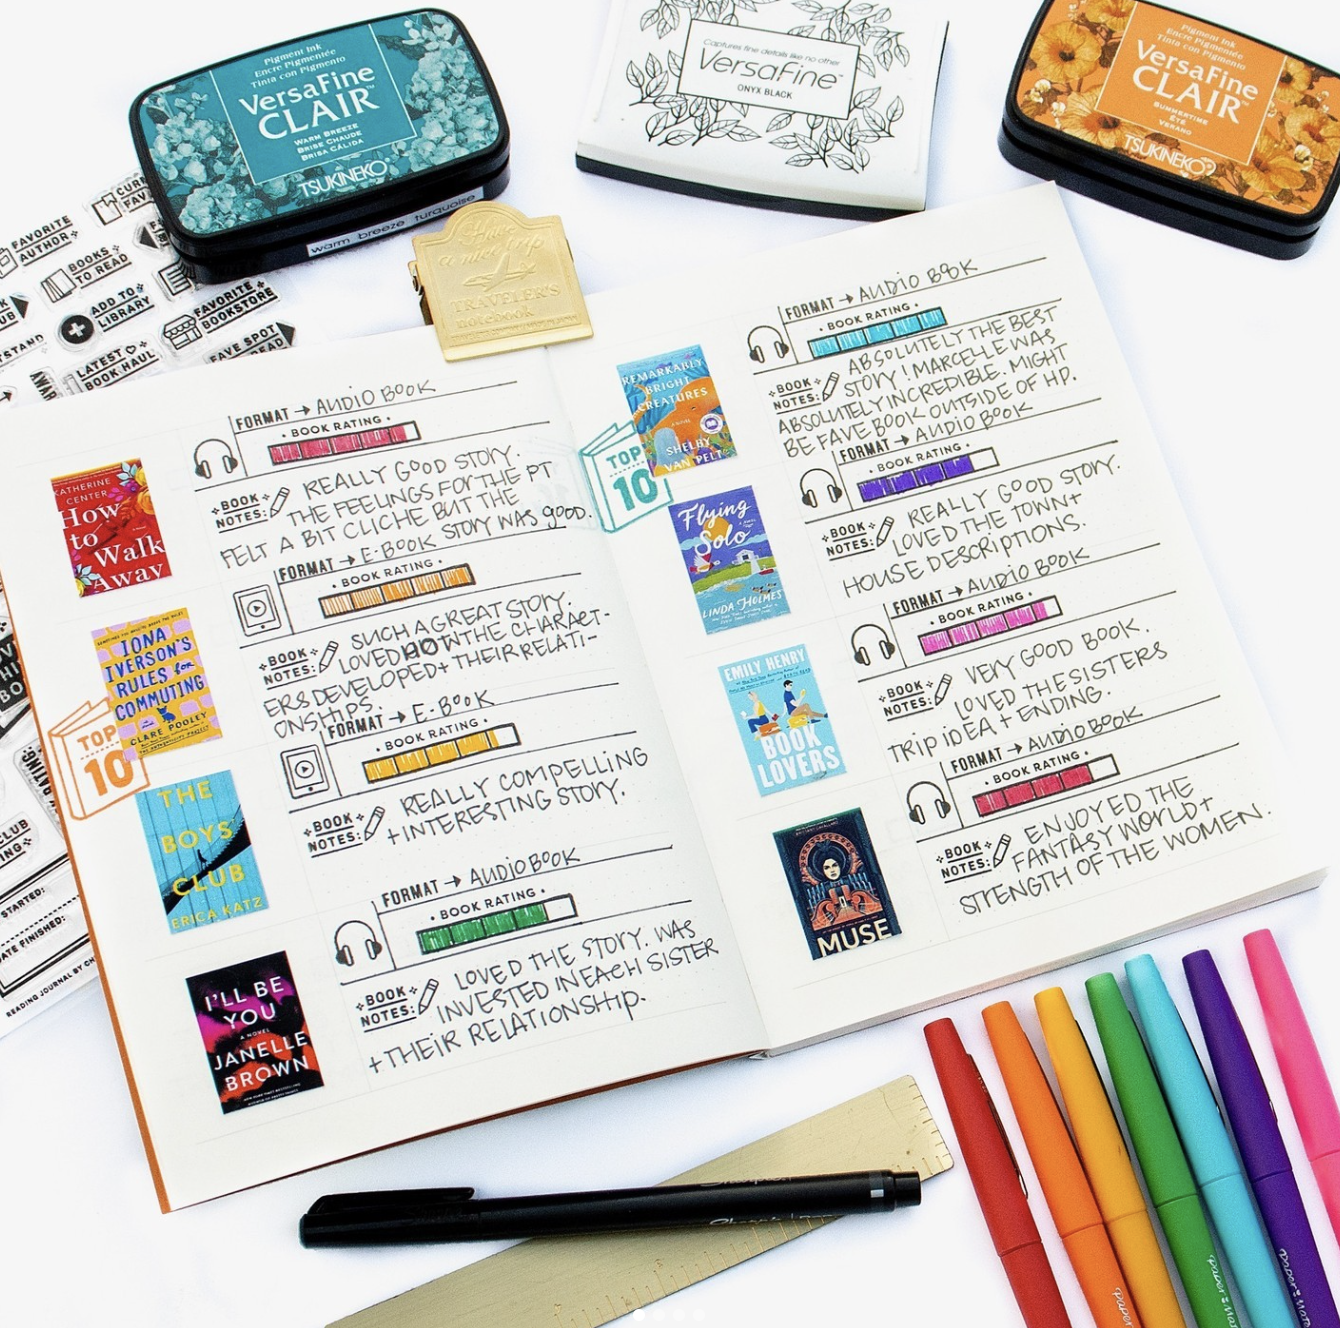 Pigment Ink
Encre Pigmentée
Tinta con Pigmento
VersaFine
CLAIR™
WARM BREEZE
BRISE CHAUDE
BRISA CÁLIDA
TSUKINEKO®
warm breeze turquoise
Captures fine details like no other
VersaFine™
ONYX BLACK
Pigment Ink
Encre Pigmentée
Tinta con Pigmento
VersaFine
CLAIR™
SUMMERTIME
ÉTÉ
VERANO
TSUKINEKO®
FAVORITE
AUTHOR
BOOKS
TO READ
ADD TO
LIBRARY
FAVORITE
BOOKSTORE
LATEST
BOOK HAUL
FAVE SPOT
STARTED:
FINISHED:
READING JOURNAL BY
a nice trip
TRAVELER'S
notebook
KATHERINE
CENTER
How
to
Walk
Away
FORMAT → AUDIO BOOK
• BOOK RATING •
BOOK
NOTES:
REALLY GOOD STORY.
THE FEELINGS FOR THE PT
FELT A BIT CLICHE BUT THE
STORY WAS GOOD.
IONA
IVERSON'S
RULES for
COMMUTING
CLARE POOLEY
TOP
10
FORMAT → E-BOOK
• BOOK RATING •
BOOK
NOTES:
SUCH A GREAT STORY.
LOVED HOW THE CHARACT-
ERS DEVELOPED + THEIR RELATI-
ONSHIPS.
THE
BOYS
CLUB
ERICA KATZ
FORMAT → E-BOOK
• BOOK RATING •
BOOK
NOTES:
REALLY COMPELLING
+ INTERESTING STORY.
I'LL BE
YOU
A NOVEL
JANELLE
BROWN
FORMAT → AUDIO BOOK
• BOOK RATING •
BOOK
NOTES:
LOVED THE STORY. WAS
INVESTED IN EACH SISTER
+ THEIR RELATIONSHIP.
REMARKABLY
BRIGHT
CREATURES
A NOVEL
SHELBY
VAN PELT
TOP
10
FORMAT → AUDIO BOOK
• BOOK RATING •
BOOK
NOTES:
ABSOLUTELY THE BEST
STORY! MARCELLE WAS
ABSOLUTELY INCREDIBLE. MIGHT
BE FAVE BOOK OUTSIDE OF HP.
Flying
Solo
LINDA HOLMES
FORMAT → AUDIO BOOK
• BOOK RATING •
BOOK
NOTES:
REALLY GOOD STORY.
LOVED THE TOWN +
HOUSE DESCRIPTIONS.
EMILY HENRY
BOOK
LOVERS
FORMAT → AUDIO BOOK
• BOOK RATING •
BOOK
NOTES:
VERY GOOD BOOK.
LOVED THE SISTERS
TRIP IDEA + ENDING.
MUSE
FORMAT → AUDIO BOOK
• BOOK RATING •
BOOK
NOTES:
ENJOYED THE
FANTASY WORLD +
STRENGTH OF THE WOMEN.